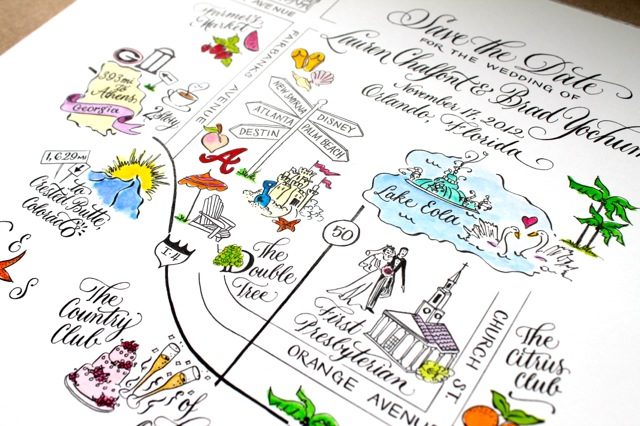 Save the Date
FOR THE WEDDING OF
Lauren Chalfont & Brad Yochum
November 11, 2012
Orlando, Florida
AVENUE
Farmer's
Market
FAIRBANKS AVENUE
G
393 mi
to
Athens,
Georgia
2 Story
NEW SMYRNA
DISNEY
ATLANTA
PALM BEACH
DESTIN
A
1,629 mi
to
Crested Butte,
Colorado
Lake Eola
50
I-4
The
Double
Tree
E
S
The
Country
Club
First
Presbyterian
CHURCH ST.
ORANGE AVENUE
The
Citrus
Club
of